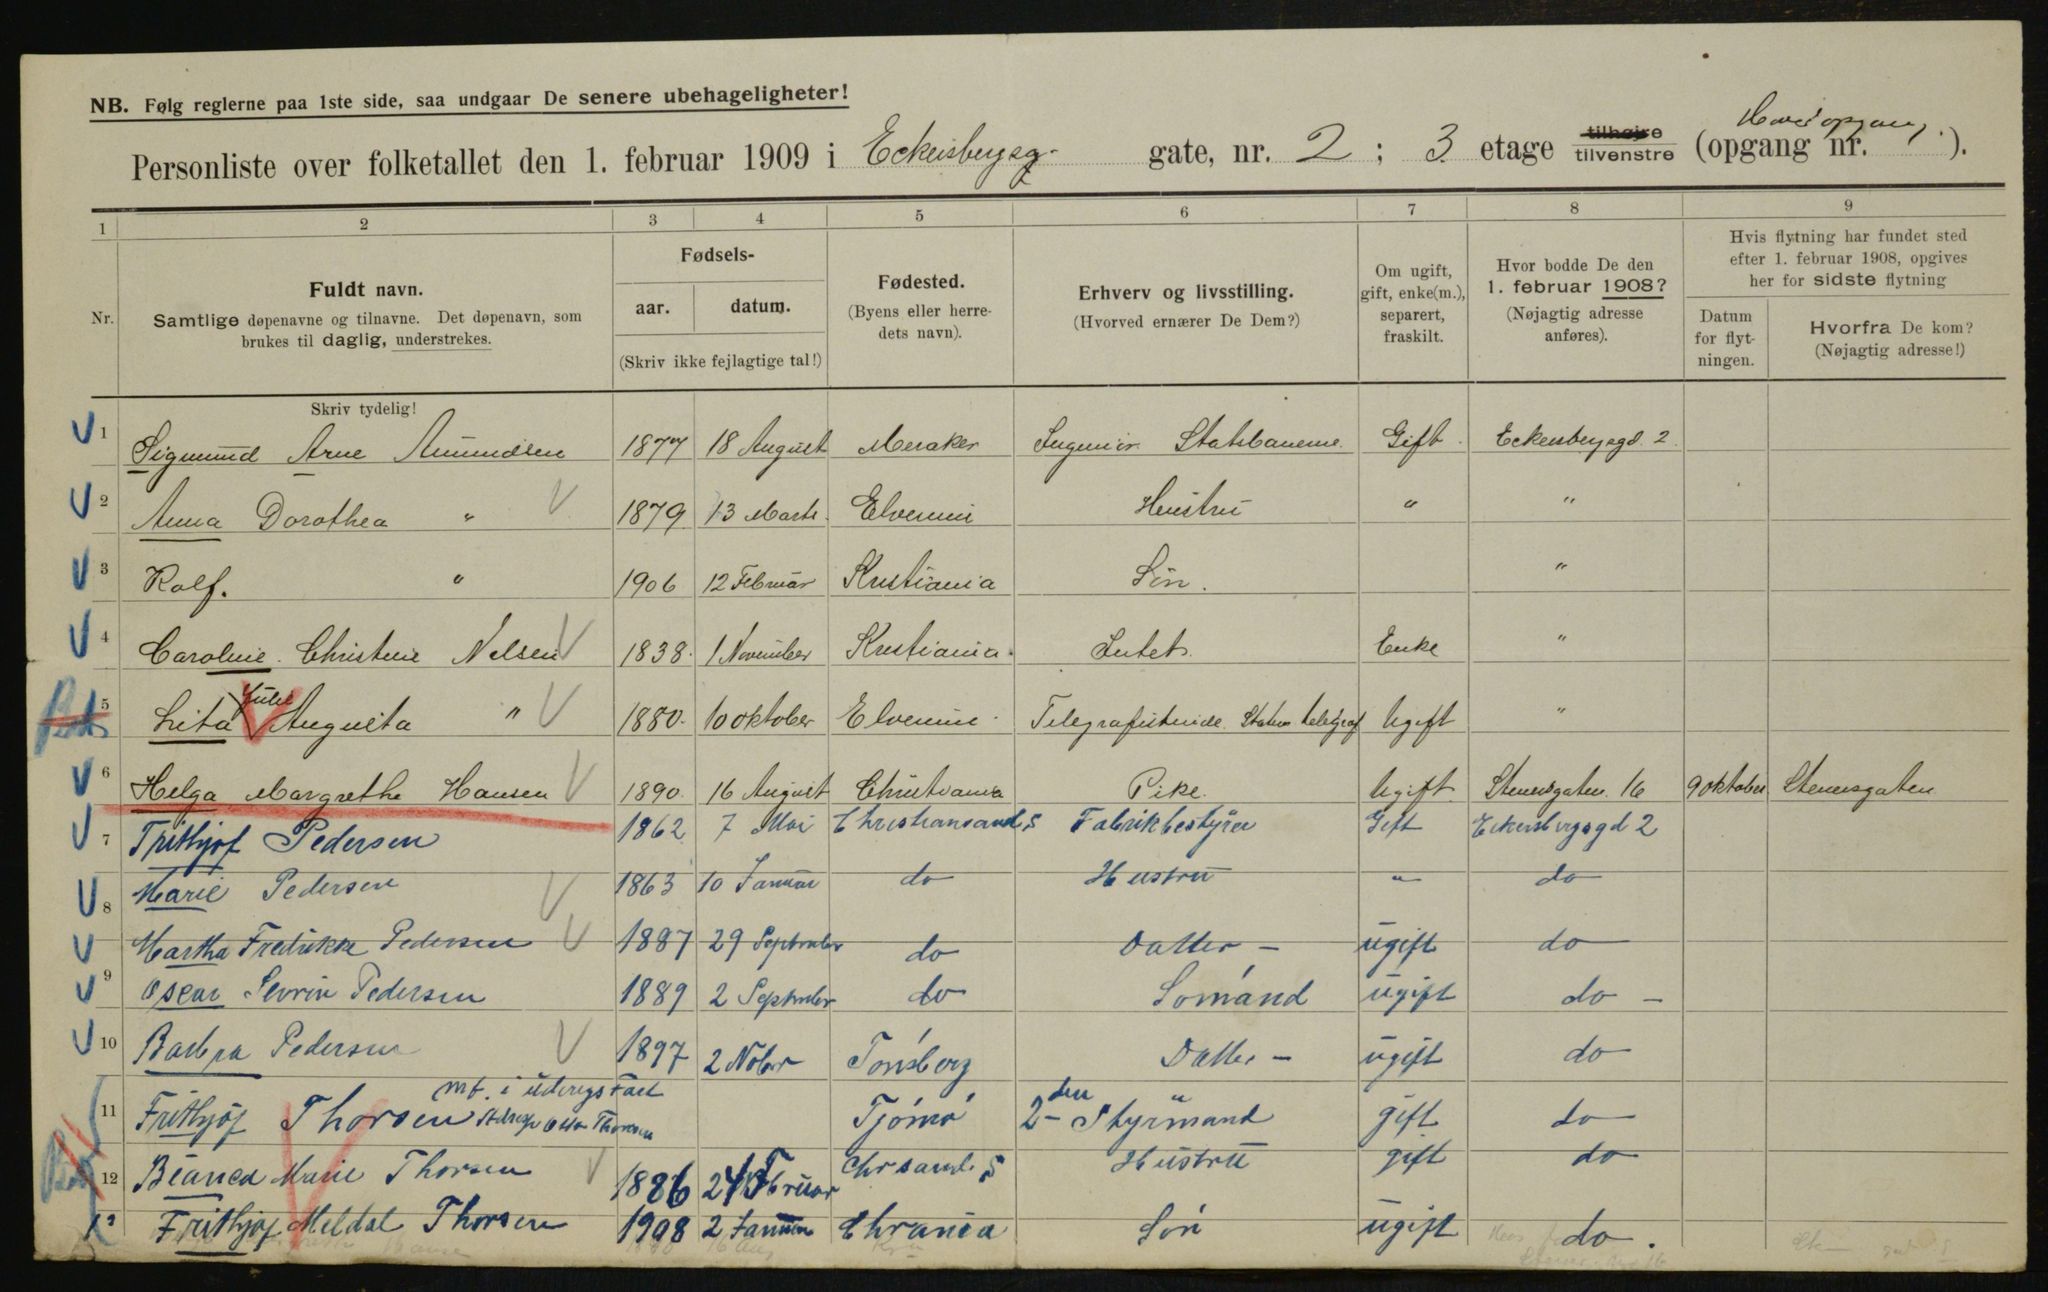 NB. Følg reglerne paa 1ste side, saa undgaar De senere ubehageligheter!
Personliste over folketallet den 1. februar 1909 i Eckersbergsg. gate, nr. 2; 3 etage tilhøire tilvenstre (opgang nr. ).
1 2 3 4 5 6 7 8 9
Nr.
Fuldt navn.
Samtlige døpenavne og tilnavne. Det døpenavn, som
brukes til daglig, understrekes.
Fødsels-
aar. datum.
(Skriv ikke fejlagtige tal!)
Fødested.
(Byens eller herre-
dets navn).
Erhverv og livsstilling.
(Hvorved ernærer De Dem?)
Om ugift,
gift, enke(m.),
separert,
fraskilt.
Hvor bodde De den
1. februar 1908?
(Nøjagtig adresse
anføres).
Hvis flytning har fundet sted
efter 1. februar 1908, opgives
her for sidste flytning
Datum
for flyt-
ningen.
Hvorfra De kom?
(Nøjagtig adresse!)
Skriv tydelig!
1 Sigmund Arne Amundsen 1877 18 August Meraker Ingeniør Statsbanerne. Gift. Eckersbergsgd. 2.
2 Anna Dorothea " 1879 13 Marts. Elverum Hustru " "
3 Rolf. " 1906 12 Februar Kristiania Søn. "
4 Caroline Christine Nilsen 1838. 1 November Kristiania. Intet. Enke "
5 Lita Julie Augusta " 1880. 10 oktober Elverum. Telegrafistinde. Statens telegraf Ugift "
6 Helga Margrethe Hansen 1890. 16 August Christiania Pike. Ugift. Stensgaten. 16 9 oktober Stensgaten
7 Frithjof Pedersen 1862 7 Mai Christiansand S Fabrikbestyrer Gift Eckersbergsgd 2
8 Marie Pedersen 1863 10 Januar do Hustru " do
Martha Fredrikke Pedersen 1887 29 September do Datter – ugift do
9 Oscar Sevrin Pedersen 1889 2 September do Sømand ugift do –
10 Barbra Pedersen 1897 2 Nobr Tønsberg Datter – ugift do
11 Frithjof Thorsen Tjømø 2den Styrmand gift do
12 Bianca Marie Thorsen 1886 24 Februar Chrsand S Hustru gift do
Frithjof Meldal Thorsen 1908 2 Januar Chrania Søn ugift do.